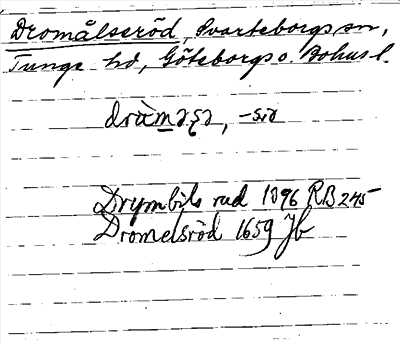 Dromålseröd, Svarteborgs sn,
Tunge hd, Göteborgs o. Bohus l.
drùməʂə, -sıə
Drymbils rud 1396 RB 245
Dromelsröd 1659 Jb